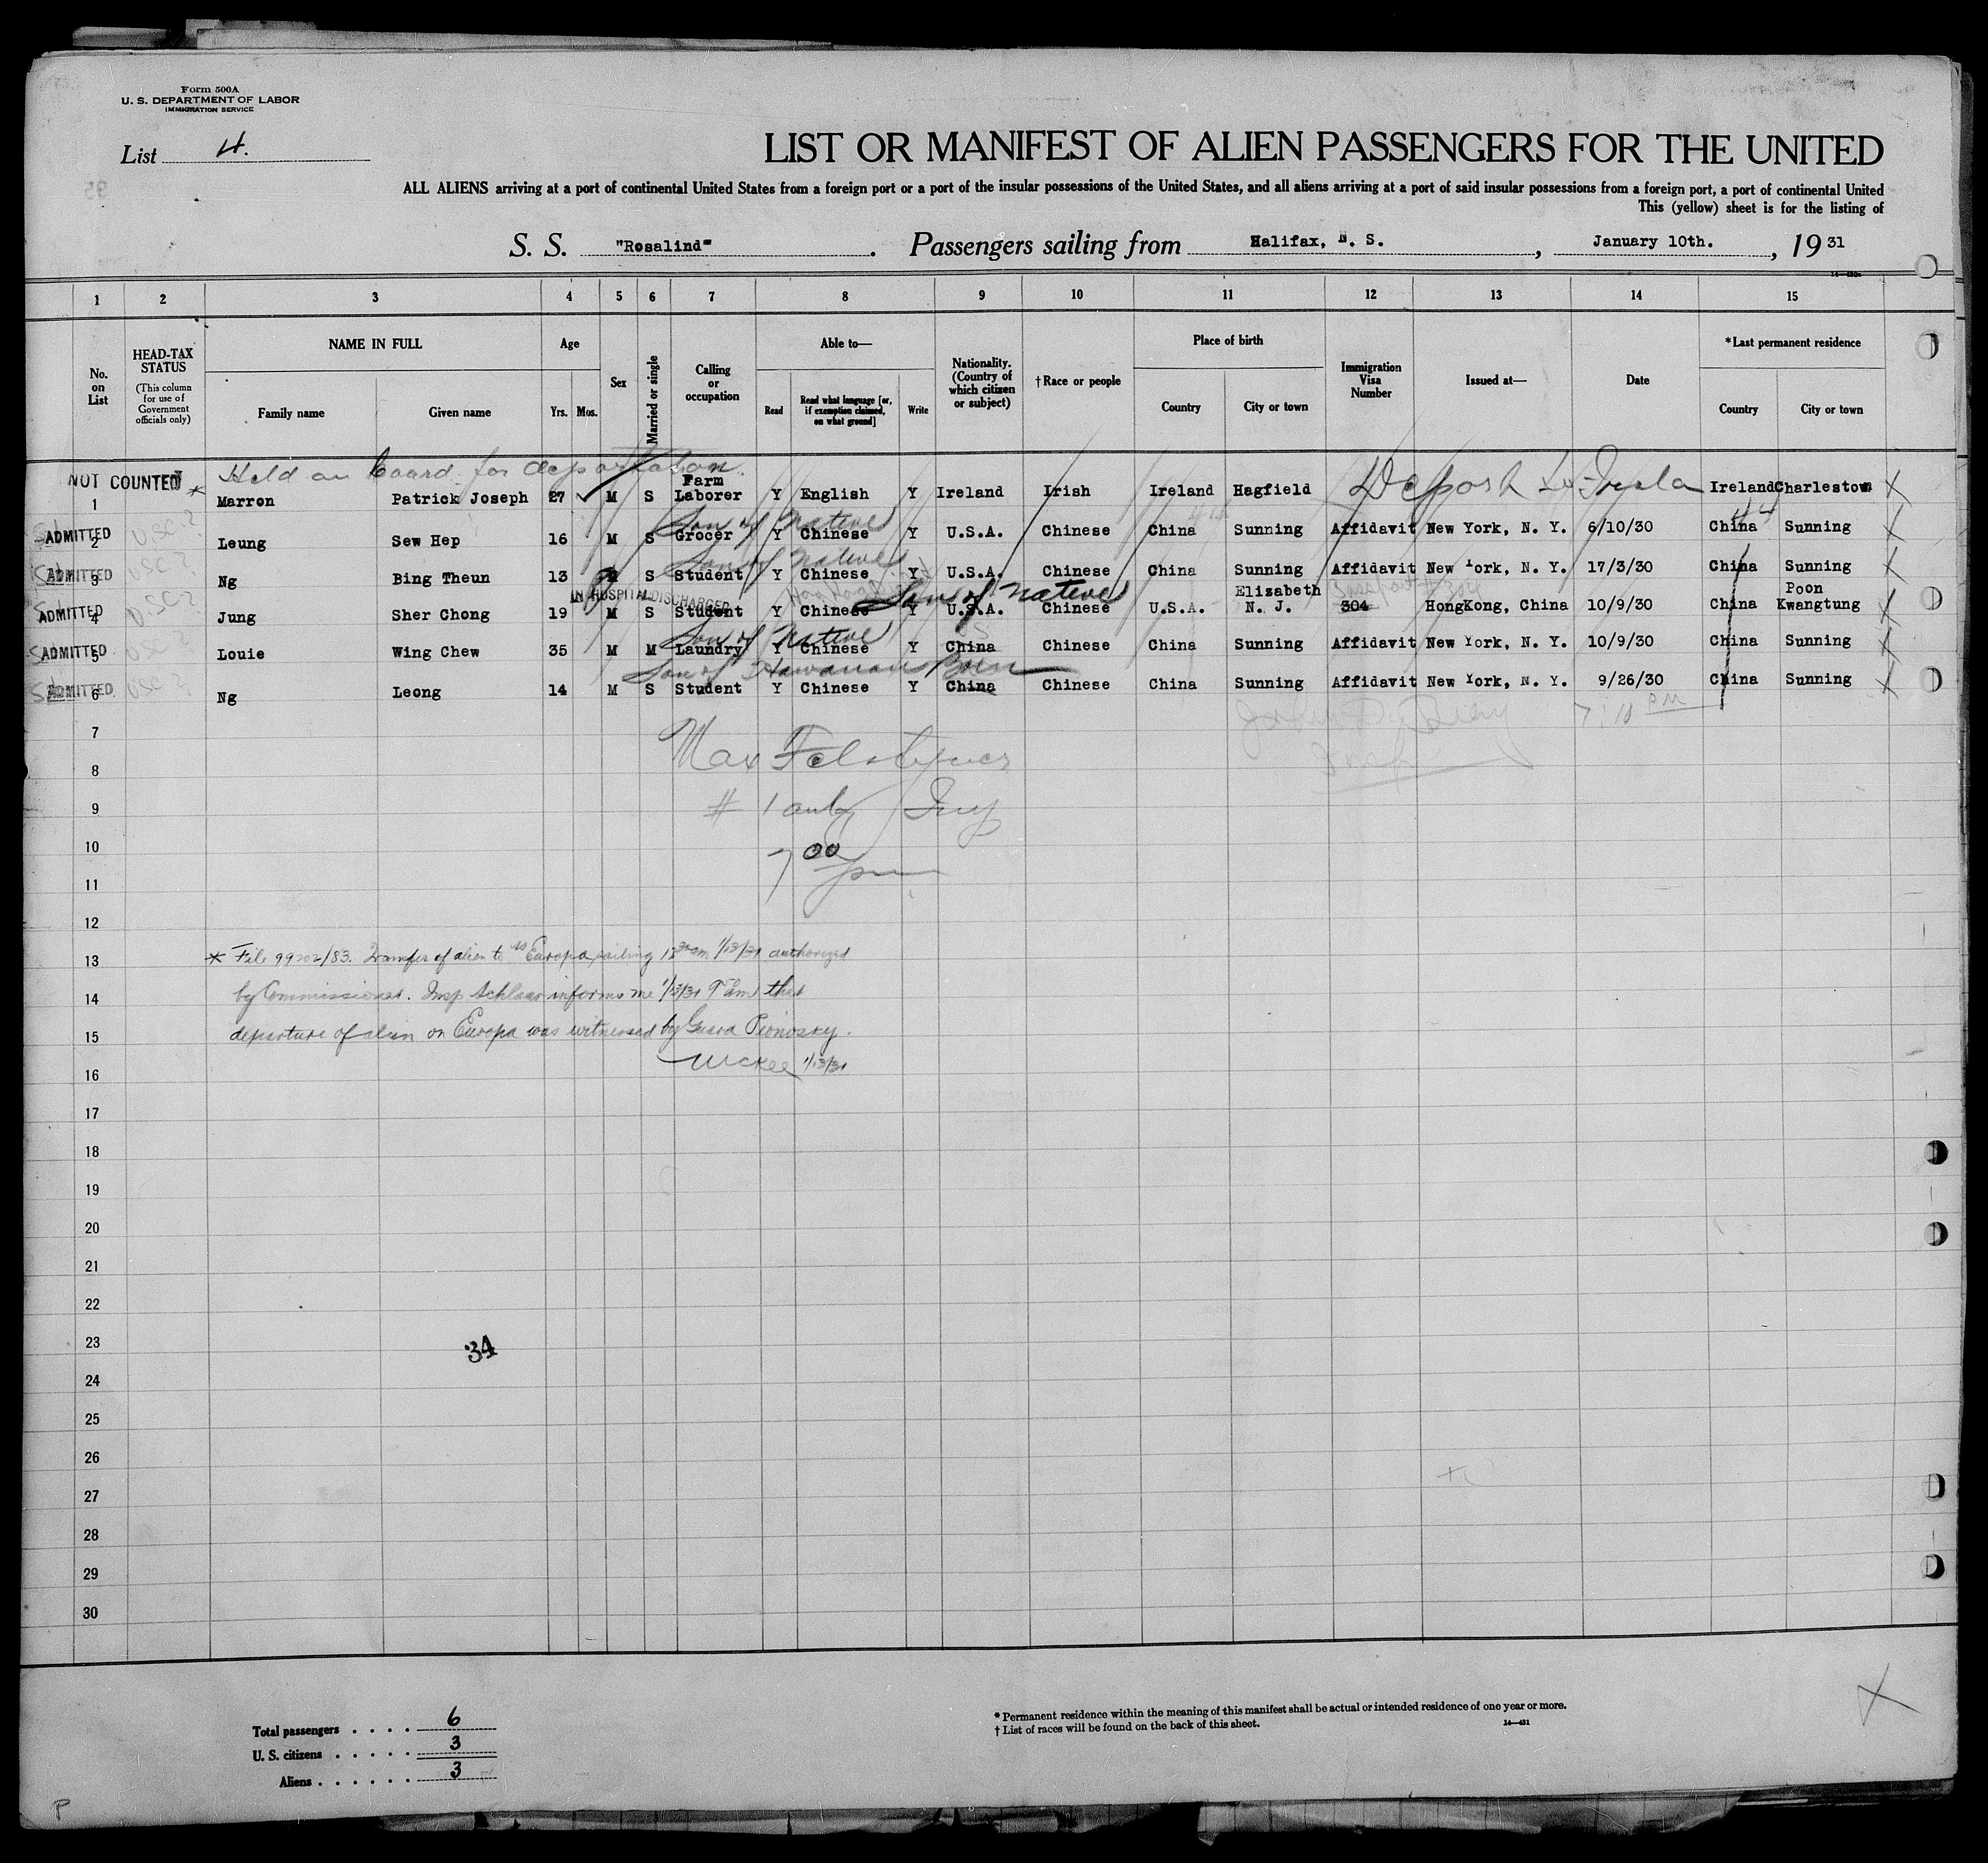 Form 500A
U. S. DEPARTMENT OF LABOR
IMMIGRATION SERVICE
List 4.
LIST OR MANIFEST OF ALIEN PASSENGERS FOR THE UNITED
ALL ALIENS arriving at a port of continental United States from a foreign port or a port of the insular possessions of the United States, and all aliens arriving at a port of said insular possessions from a foreign port, a port of continental United
This (yellow) sheet is for the listing of
S. S. "Rosalind". Passengers sailing from Halifax, N. S., January 10th., 1931
1 2 3 4 5 6 7 8 9 10 11 12 13 14 15
No. on List
HEAD-TAX STATUS
(This column for use of Government officials only)
NAME IN FULL
Family name Given name
Age
Yrs. Mos.
Sex
Married or single
Calling or occupation
Able to—
Read
Read what language [or, if exemption claimed, on what ground]
Write
Nationality. (Country of which citizen or subject)
†Race or people
Place of birth
Country City or town
Immigration Visa Number
Issued at—
Date
*Last permanent residence
Country City or town
Held on board for deportation.
NOT COUNTED
1 * Marron Patrick Joseph 27 M S Farm Laborer Y English Y Ireland Irish Ireland Hagfield Ireland Charlestown X
Son of Native
ADMITTED USC?
2 Leung Sew Hep 16 M S Grocer Y Chinese Y U.S.A. Chinese China Sunning Affidavit New York, N. Y. 6/10/30 China Sunning X
Son of Native
ADMITTED USC?
3 Ng Bing Theun 13 M S Student Y Chinese Y U.S.A. Chinese China Sunning Affidavit New York, N. Y. 17/3/30 China Sunning X
IN HOSPITAL DISCHARGED Son of Native
ADMITTED USC?
4 Jung Sher Chong 19 M S Student Y Chinese Y U.S.A. Chinese U.S.A. Elizabeth N. J. 304 HongKong, China 10/9/30 China Poon Kwangtung X
Son of Native
ADMITTED USC?
5 Louie Wing Chew 35 M M Laundry Y Chinese Y China Chinese China Sunning Affidavit New York, N. Y. 10/9/30 China Sunning X
Son of Hawaiian Born
ADMITTED USC?
6 Ng Leong 14 M S Student Y Chinese Y China Chinese China Sunning Affidavit New York, N. Y. 9/26/30 China Sunning X
7:10 PM
7
Max
8
9
# 1 only
10
7 00 pm
11
12
13 * File 99202/83. Transfer of alien to SS Europa sailing 12 30 am 1/13/31 authorized
14 by Commissioner. Insp informs me 1/13/31 9 am that
15 departure of alien on Europa was witnessed by Guard
16 McKee 1/13/31
17
18
19
20
21
22
23
34
24
25
26
27
28
29
30
Total passengers . . . . 6
U. S. citizens . . . . . 3
Aliens . . . . . . 3
* Permanent residence within the meaning of this manifest shall be actual or intended residence of one year or more.
† List of races will be found on the back of this sheet.
14—431
P
X